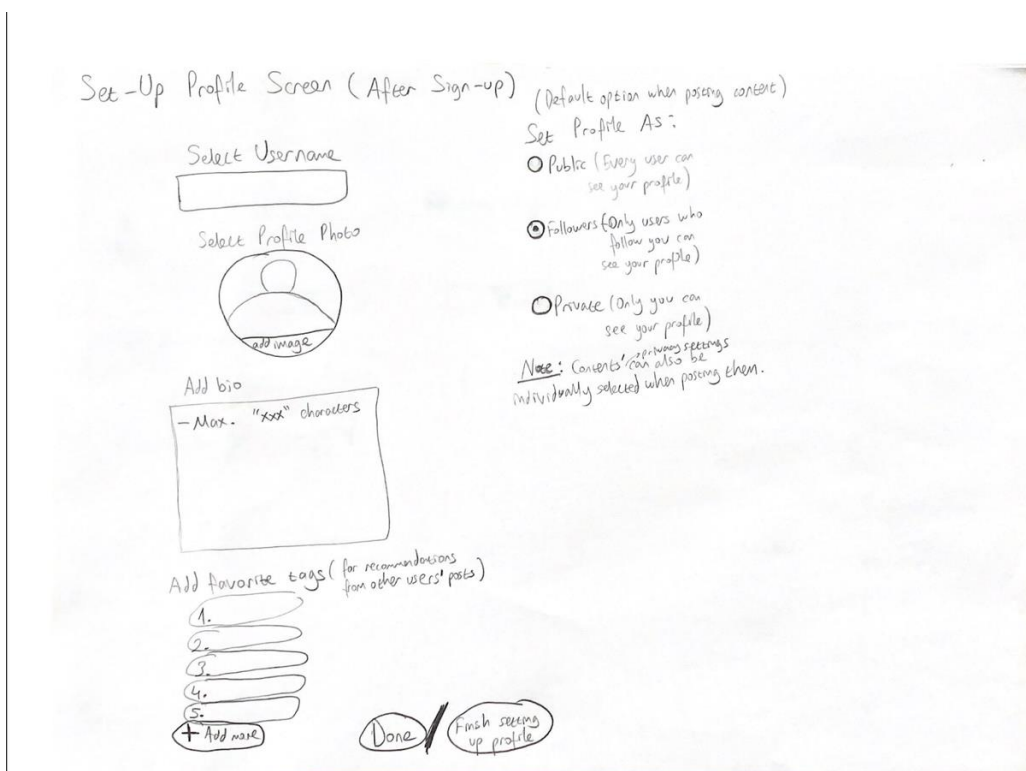 Set-Up Profile Screen (After Sign-up)
Select Username
Select Profile Photo
add image
Add bio
- Max. "xxx" characters
Add favorite tags (for recommendations
from other users' posts)
1.
2.
3.
4.
5.
+ Add more
(Default option when posting content)
Set Profile As:
Public (Every user can
see your profile)
Followers (Only users who
follow you can
see your profile)
Private (Only you can
see your profile)
Note: Contents' privacy settings
can also be
individually selected when posting them.
Done / Finish setting
up profile